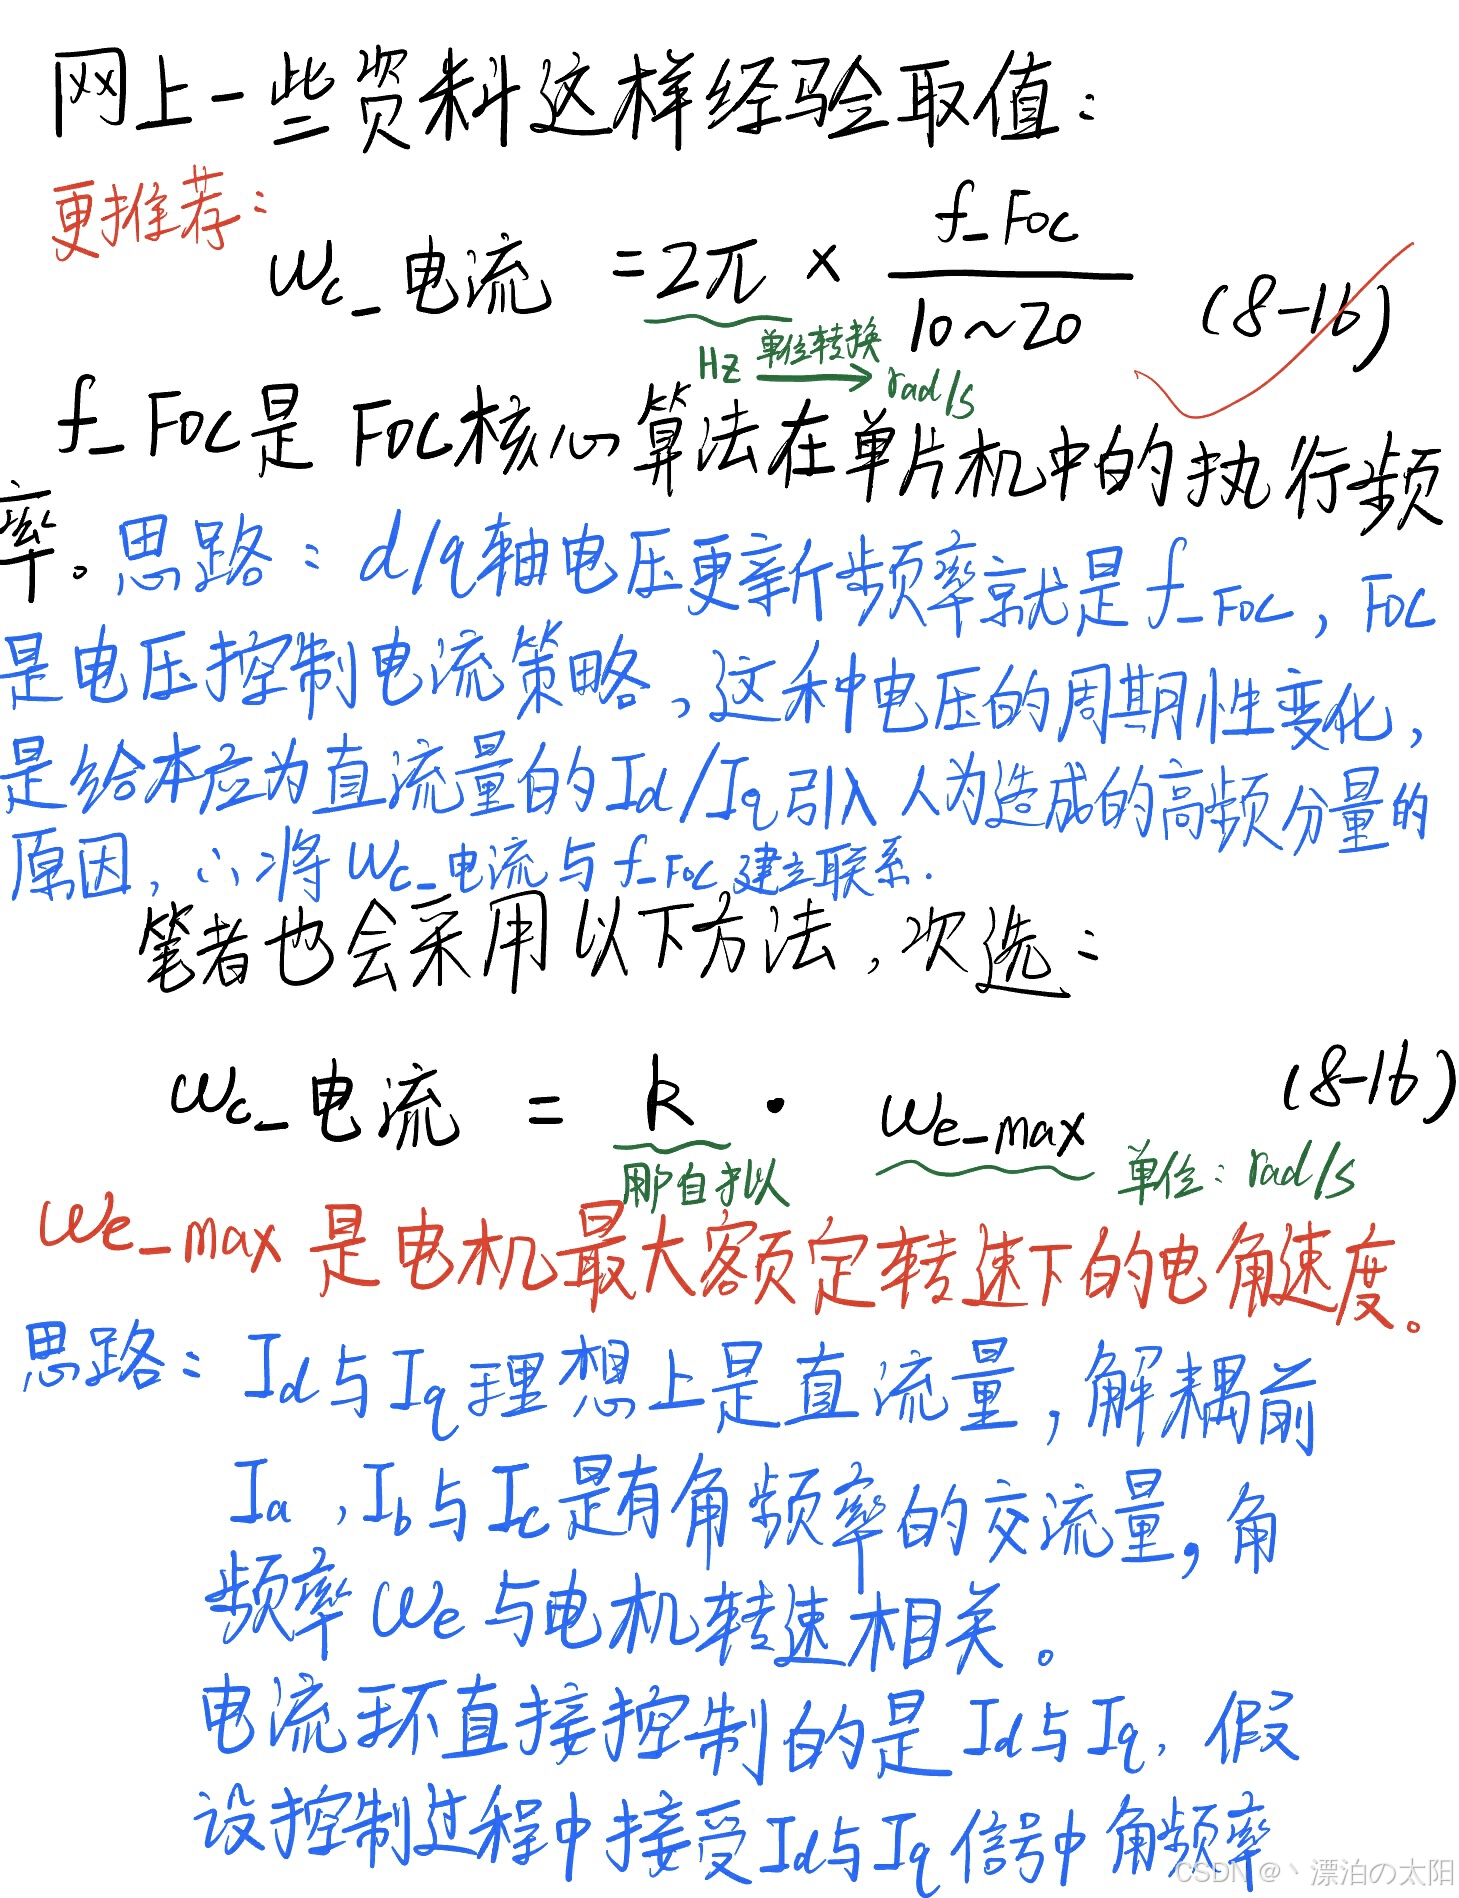 网上一些资料这样经验取值：
更推荐：
Wc_电流 = 2π × f_FOC / 10~20 (8-16)
Hz 单位转换 → rad/s
f_FOC是FOC核心算法在单片机中的执行频
率。思路：d/q轴电压更新频率就是f_FOC，FOC
是电压控制电流策略，这种电压的周期性变化，
是给本应为直流量的Id/Iq引入人为造成的高频分量的
原因，∴将Wc_电流与f_FOC建立联系.
笔者也会采用以下方法，次选：
Wc_电流 = k · We_max (8-16)
自拟 单位：rad/s
We_max是电机最大额定转速下的电角速度。
思路：Id与Iq理想上是直流量，解耦前
Ia，Ib与Ic是有角频率的交流量，角
频率We与电机转速相关。
电流环直接控制的是Id与Iq，假
设控制过程中接受Id与Iq信号中角频率
CSDN @丶漂泊の太阳